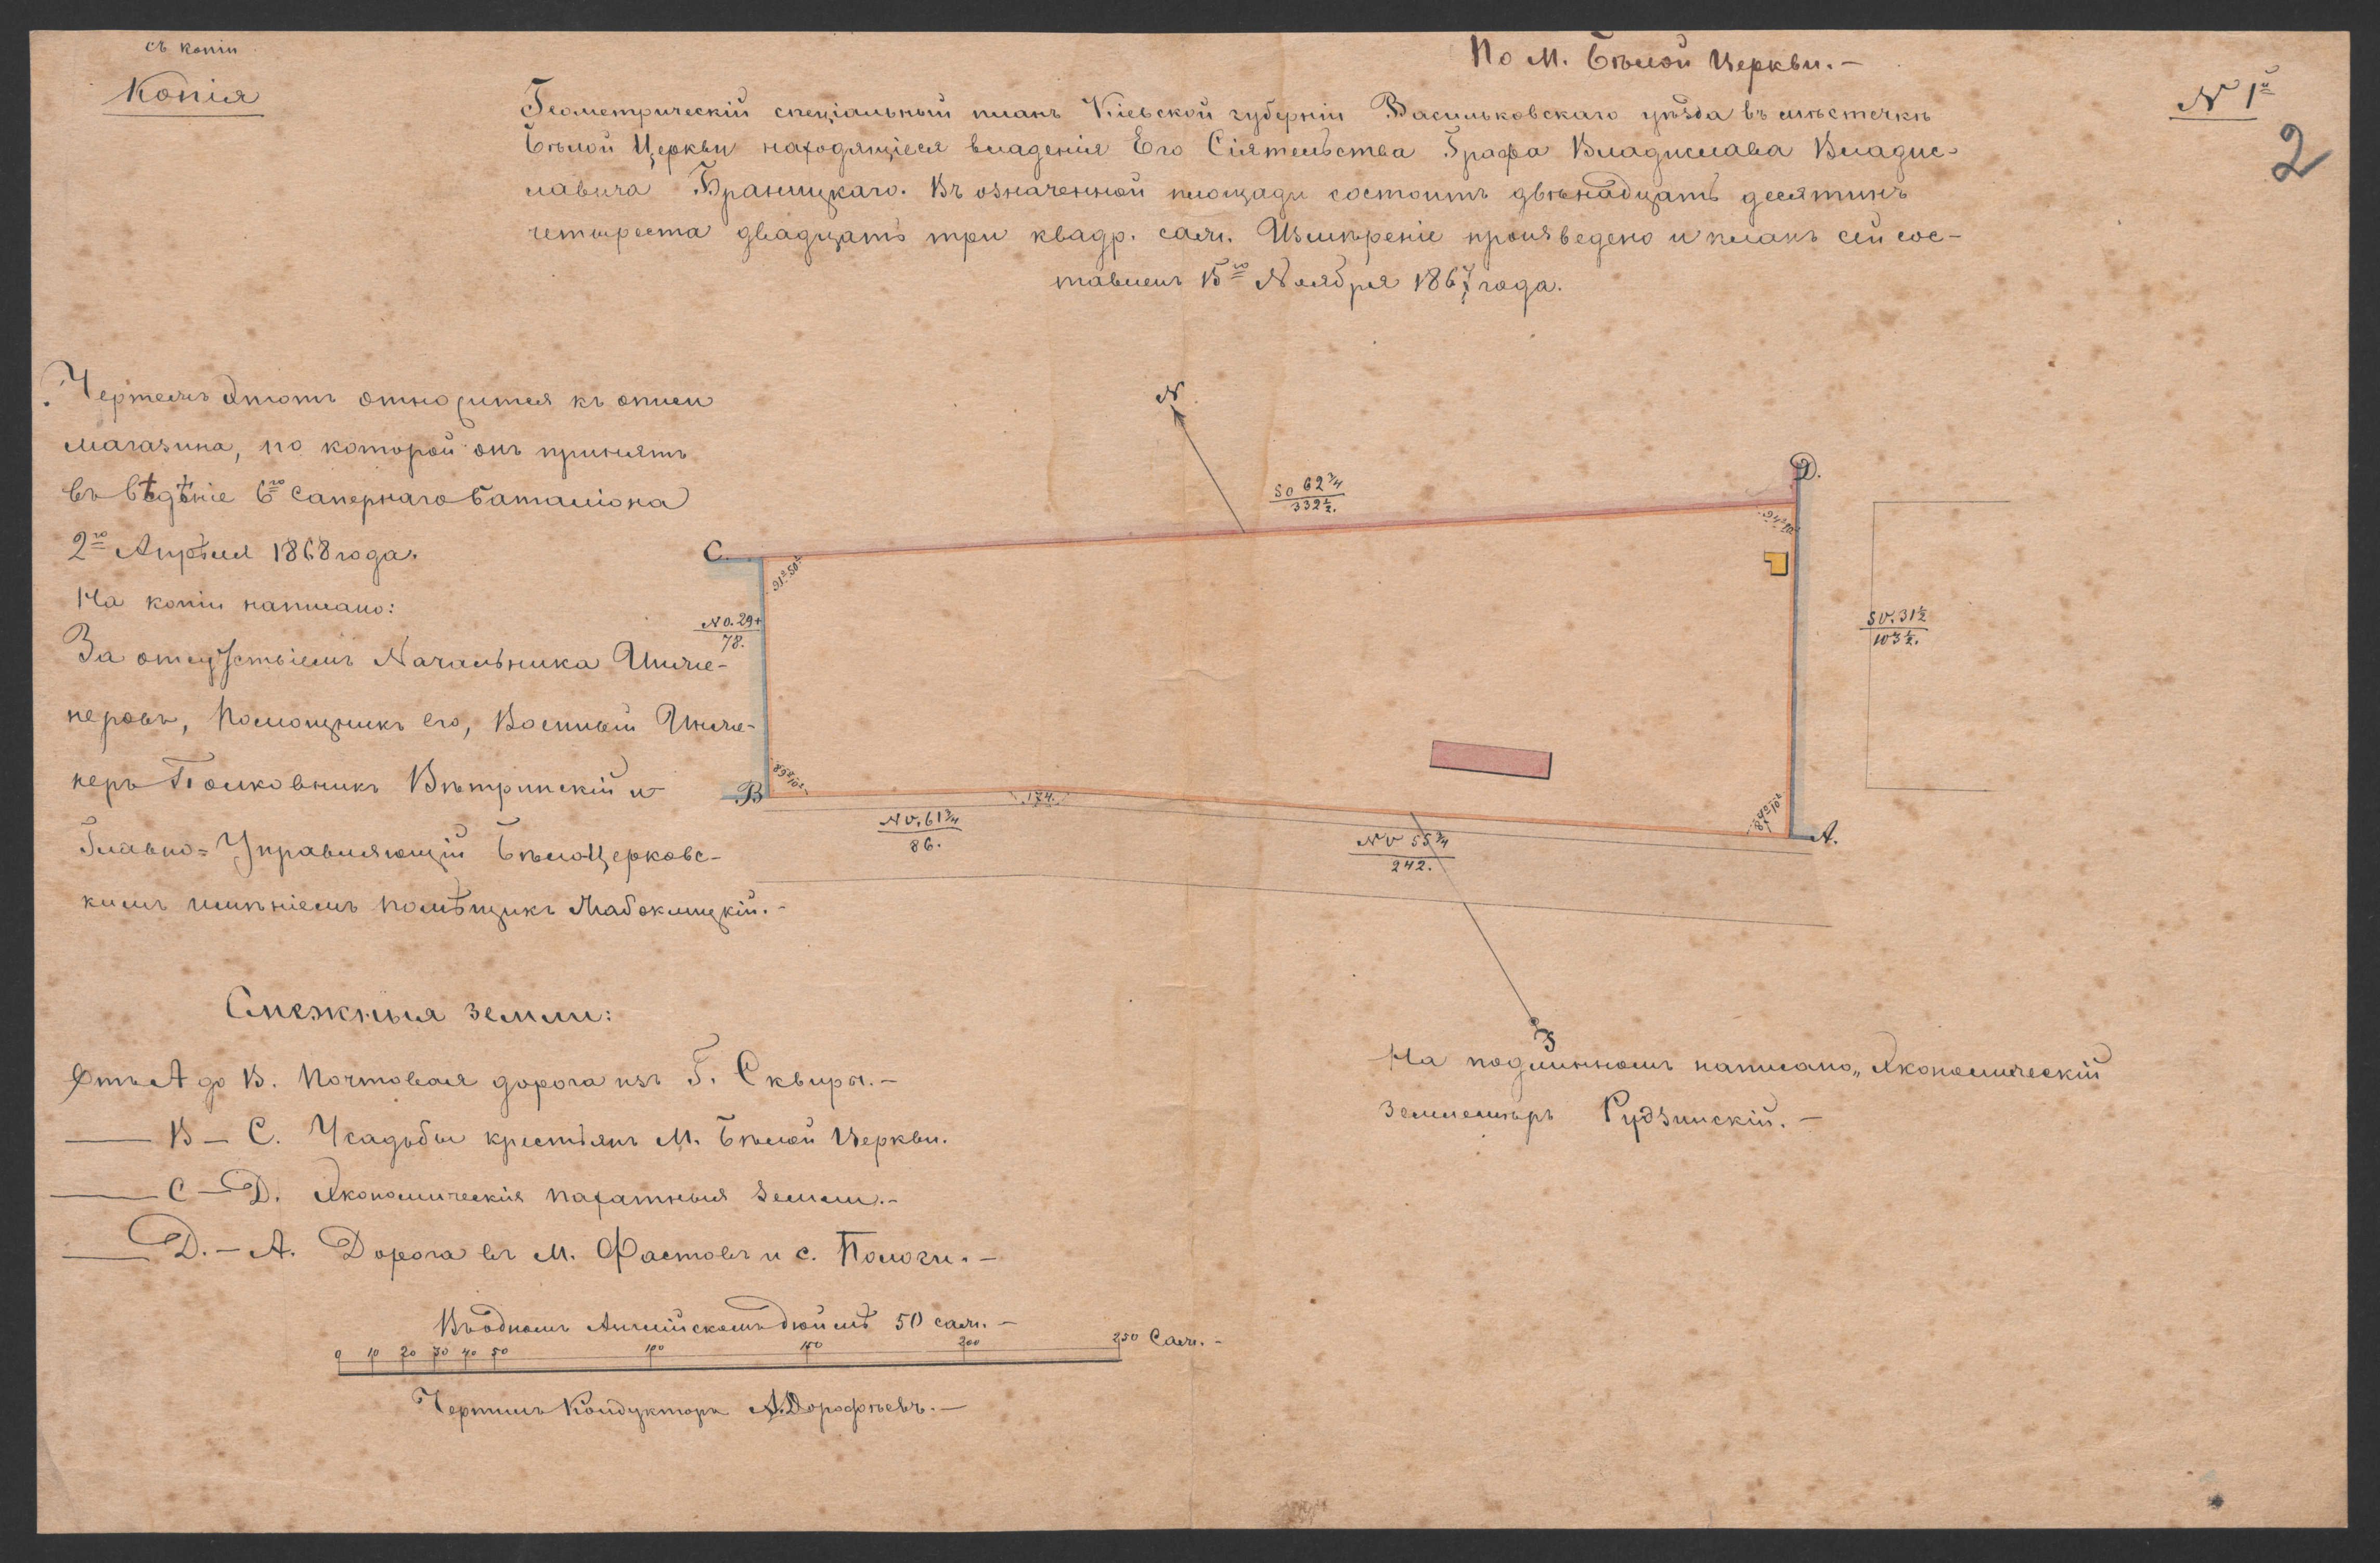 съ копіи
Копія
По М. Бѣлой Церкви. —
№ 1й
2
Геометрическій спеціальный планъ Кіевской губерніи Васильковскаго уѣзда въ мѣстечкѣ
Бѣлой Церкви находящіеся владенія Его Сіятельства Графа Владислава Владис-
лавича Браницкаго. Въ означенной площади состоитъ двѣнадцать десятинъ
четыреста двадцать три квадр. саж. Измѣреніе произведено и планъ сей сос-
тавленъ 15го Ноября 1867 года.
Чертежъ этотъ относится къ описи
магазина, по которой онъ принятъ
въ вѣдѣніе 6го Сапернаго баталіона
2го Апрѣля 1868 года.
На копіи написано:
За отсутствіемъ Начальника Инже-
неровъ, Помощникъ его, Военный Инже-
неръ Полковникъ Вѣтринскій и
Главно=Управляющій Бѣлоцерковс-
кимъ имѣніемъ помѣщикъ
N
SO 62 3/4
332 1/2.
C.
D.
91° 50'
NO. 29
78.
SV. 31 1/2
103 1/2.
B
89° 10'
174.
84° 10'
A.
NV. 61 3/4
86.
NV 55 3/4
242.
S
Смежныя земли:
Отъ А до В. Почтовая дорога изъ Г. Сквиры. —
— В — С. Усадьбы крестьянъ М. Бѣлой Церкви.
— С — D. Экономическія пахатныя земли. —
— D. — А. Дорога въ М. Фастовъ и с. Пологи. —
На подлинномъ написано „Экономическій
Землемѣръ Рудзинскій. —
Въ одномъ Англійскомъ дюймѣ 50 саж. —
0 10 20 30 40 50 100 150 200 250 Саж. —
Чертилъ Кондукторъ А. Дорофѣевъ. —